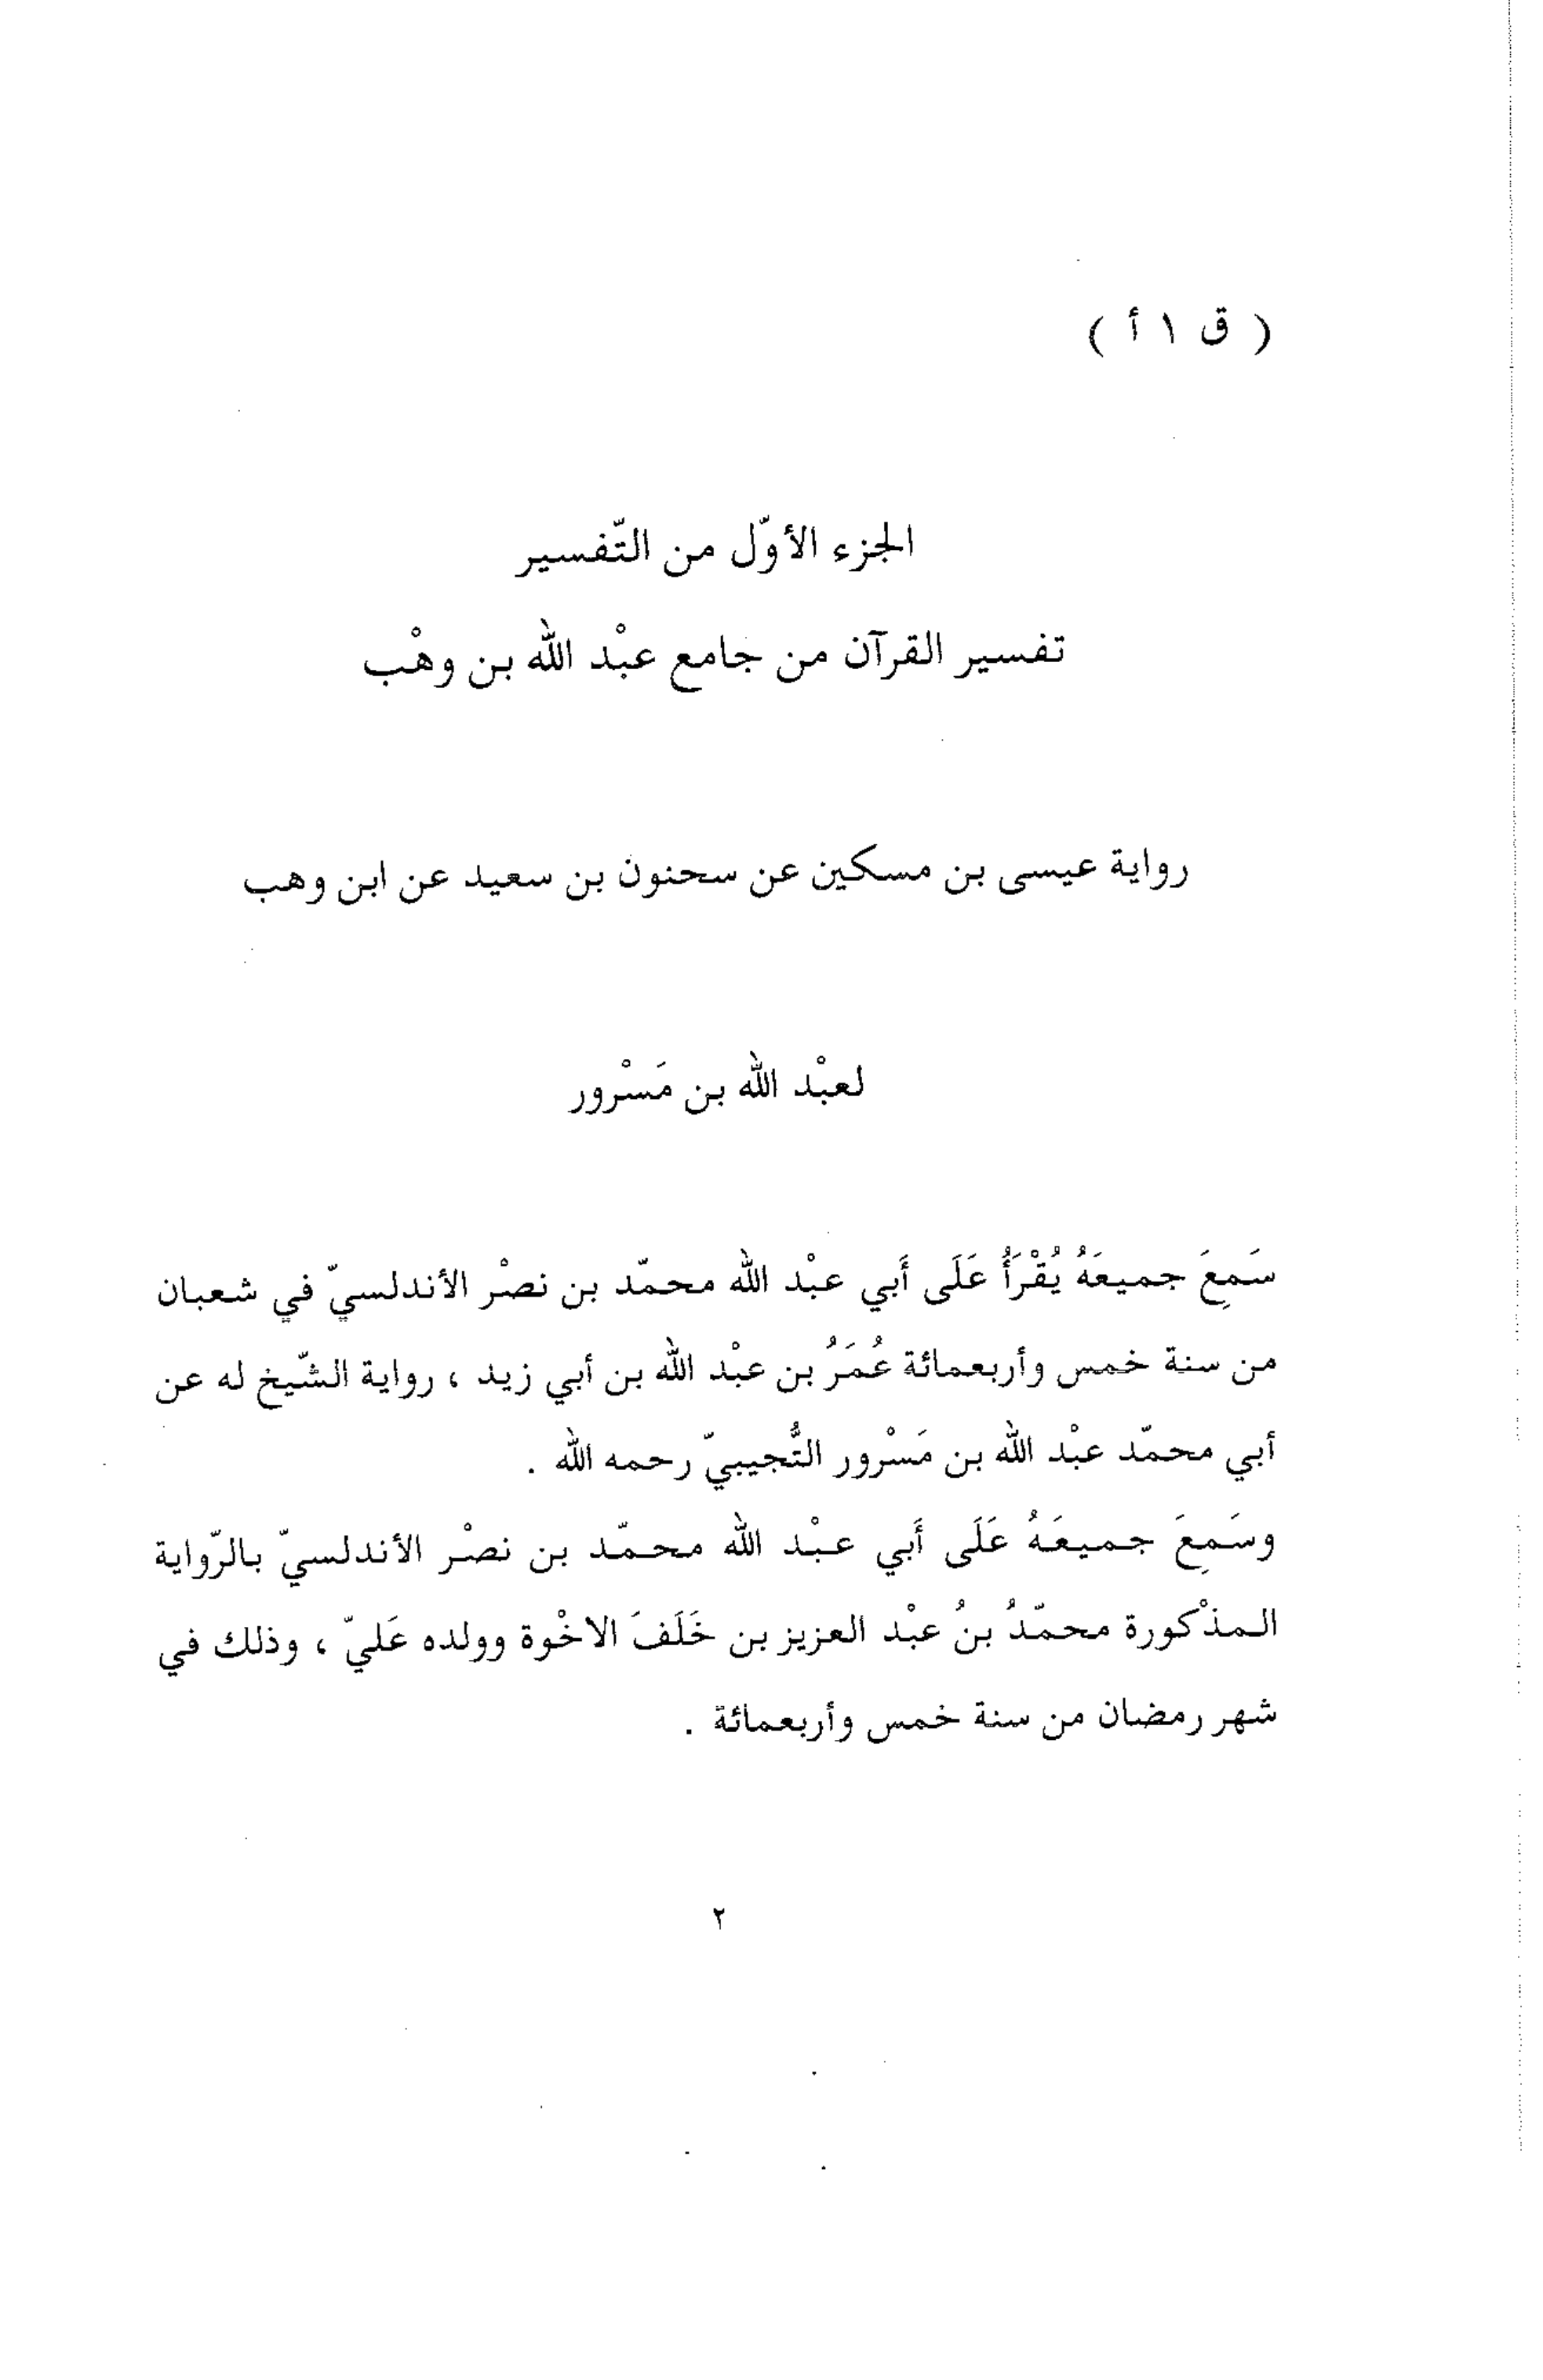 ( ق ١ أ )
الجزء الأوّل من التّفسير
تفسير القرآن من جامع عبْد الله بن وهْب
رواية عيسى بن مسكين عن سحنون بن سعيد عن ابن وهب
لعبْد الله بن مَسْرور
سَمِعَ جميعَهُ يُقْرَأُ عَلَى أَبي عبْد الله محمّد بن نصْر الأندلسيّ في شعبان
من سنة خمس وأربعمائة عُمَرُ بن عبْد الله بن أبي زيد ، رواية الشّيخ له عن
أبي محمّد عبْد الله بن مَسْرور التُّجيبيّ رحمه الله .
وسَمِعَ جميعَهُ عَلَى أَبي عبْد الله محمّد بن نصْر الأندلسيّ بالرّواية
المذْكورة محمّدُ بنُ عبْد العزيز بن خَلَفَ الاخْوة وولده عَليّ ، وذلك في
شهر رمضان من سنة خمس وأربعمائة .
٢